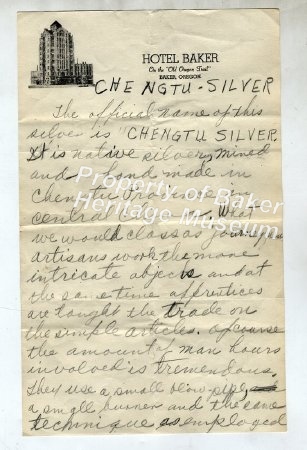 HOTEL BAKER
On the "Old Oregon Trail"
BAKER, OREGON
CHENGTU-SILVER
The official name of this
silver is "CHENGTU SILVER.
It is native silver, mined
and and made in
Chengtu Province in
central What
we would class as
artisans work the more
intricate objects and at
the same time apprentices
are taught the trade on
the simple articles. Of course
the amount of man hours
involved is tremendous.
They use a small blow pipe, and
a small burner and the same
technique as employed
Property of Baker
Heritage Museum